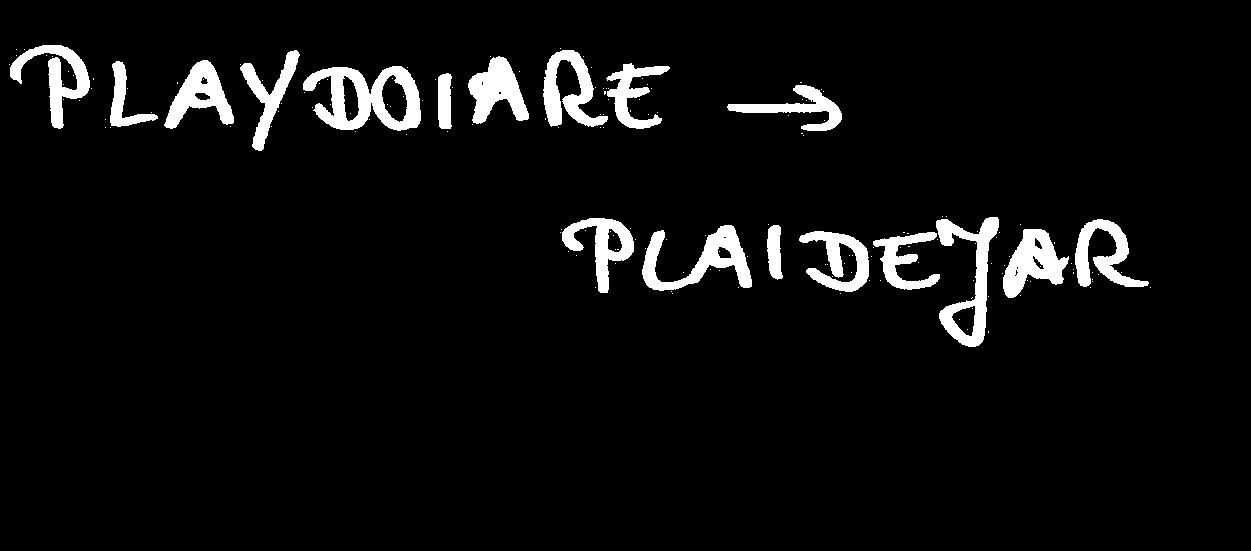 PLAYDOIARE →
PLAIDEJAR